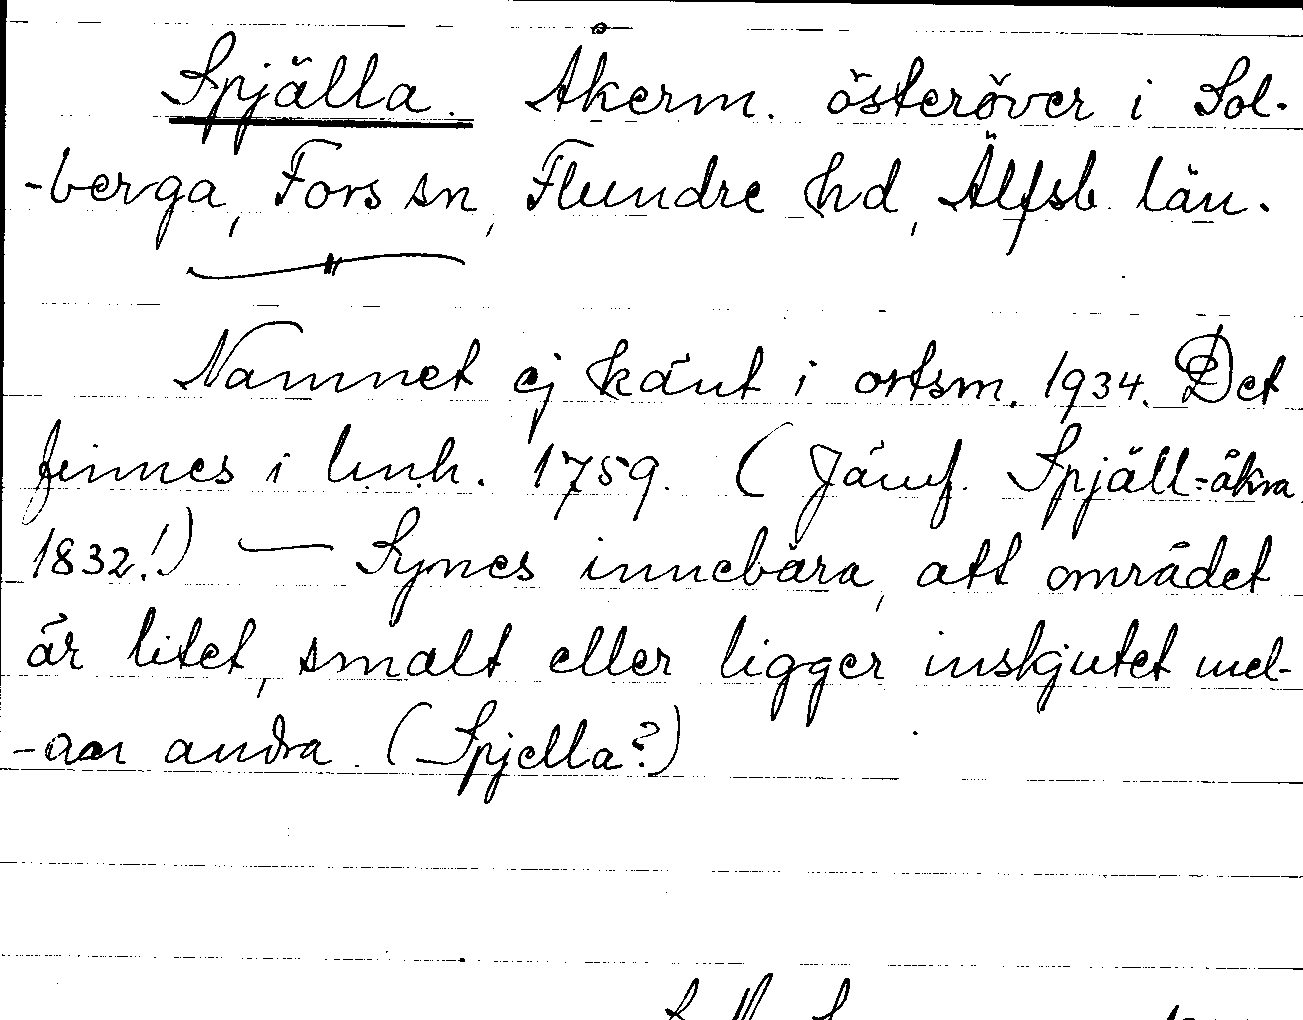 Spjälla. Åkerm. österöver i Sol-
-berga, Fors sn, Flundre hd, Älfsb. län.
Namnet ej känt i ortsm. 1934. Det
finnes i l.n.h. 1759. (Jämf. Spjäll-åkra
1832!) — Synes innebära, att området
är litet, smalt eller ligger inskjutet mel-
-an andra. (Spjella?)